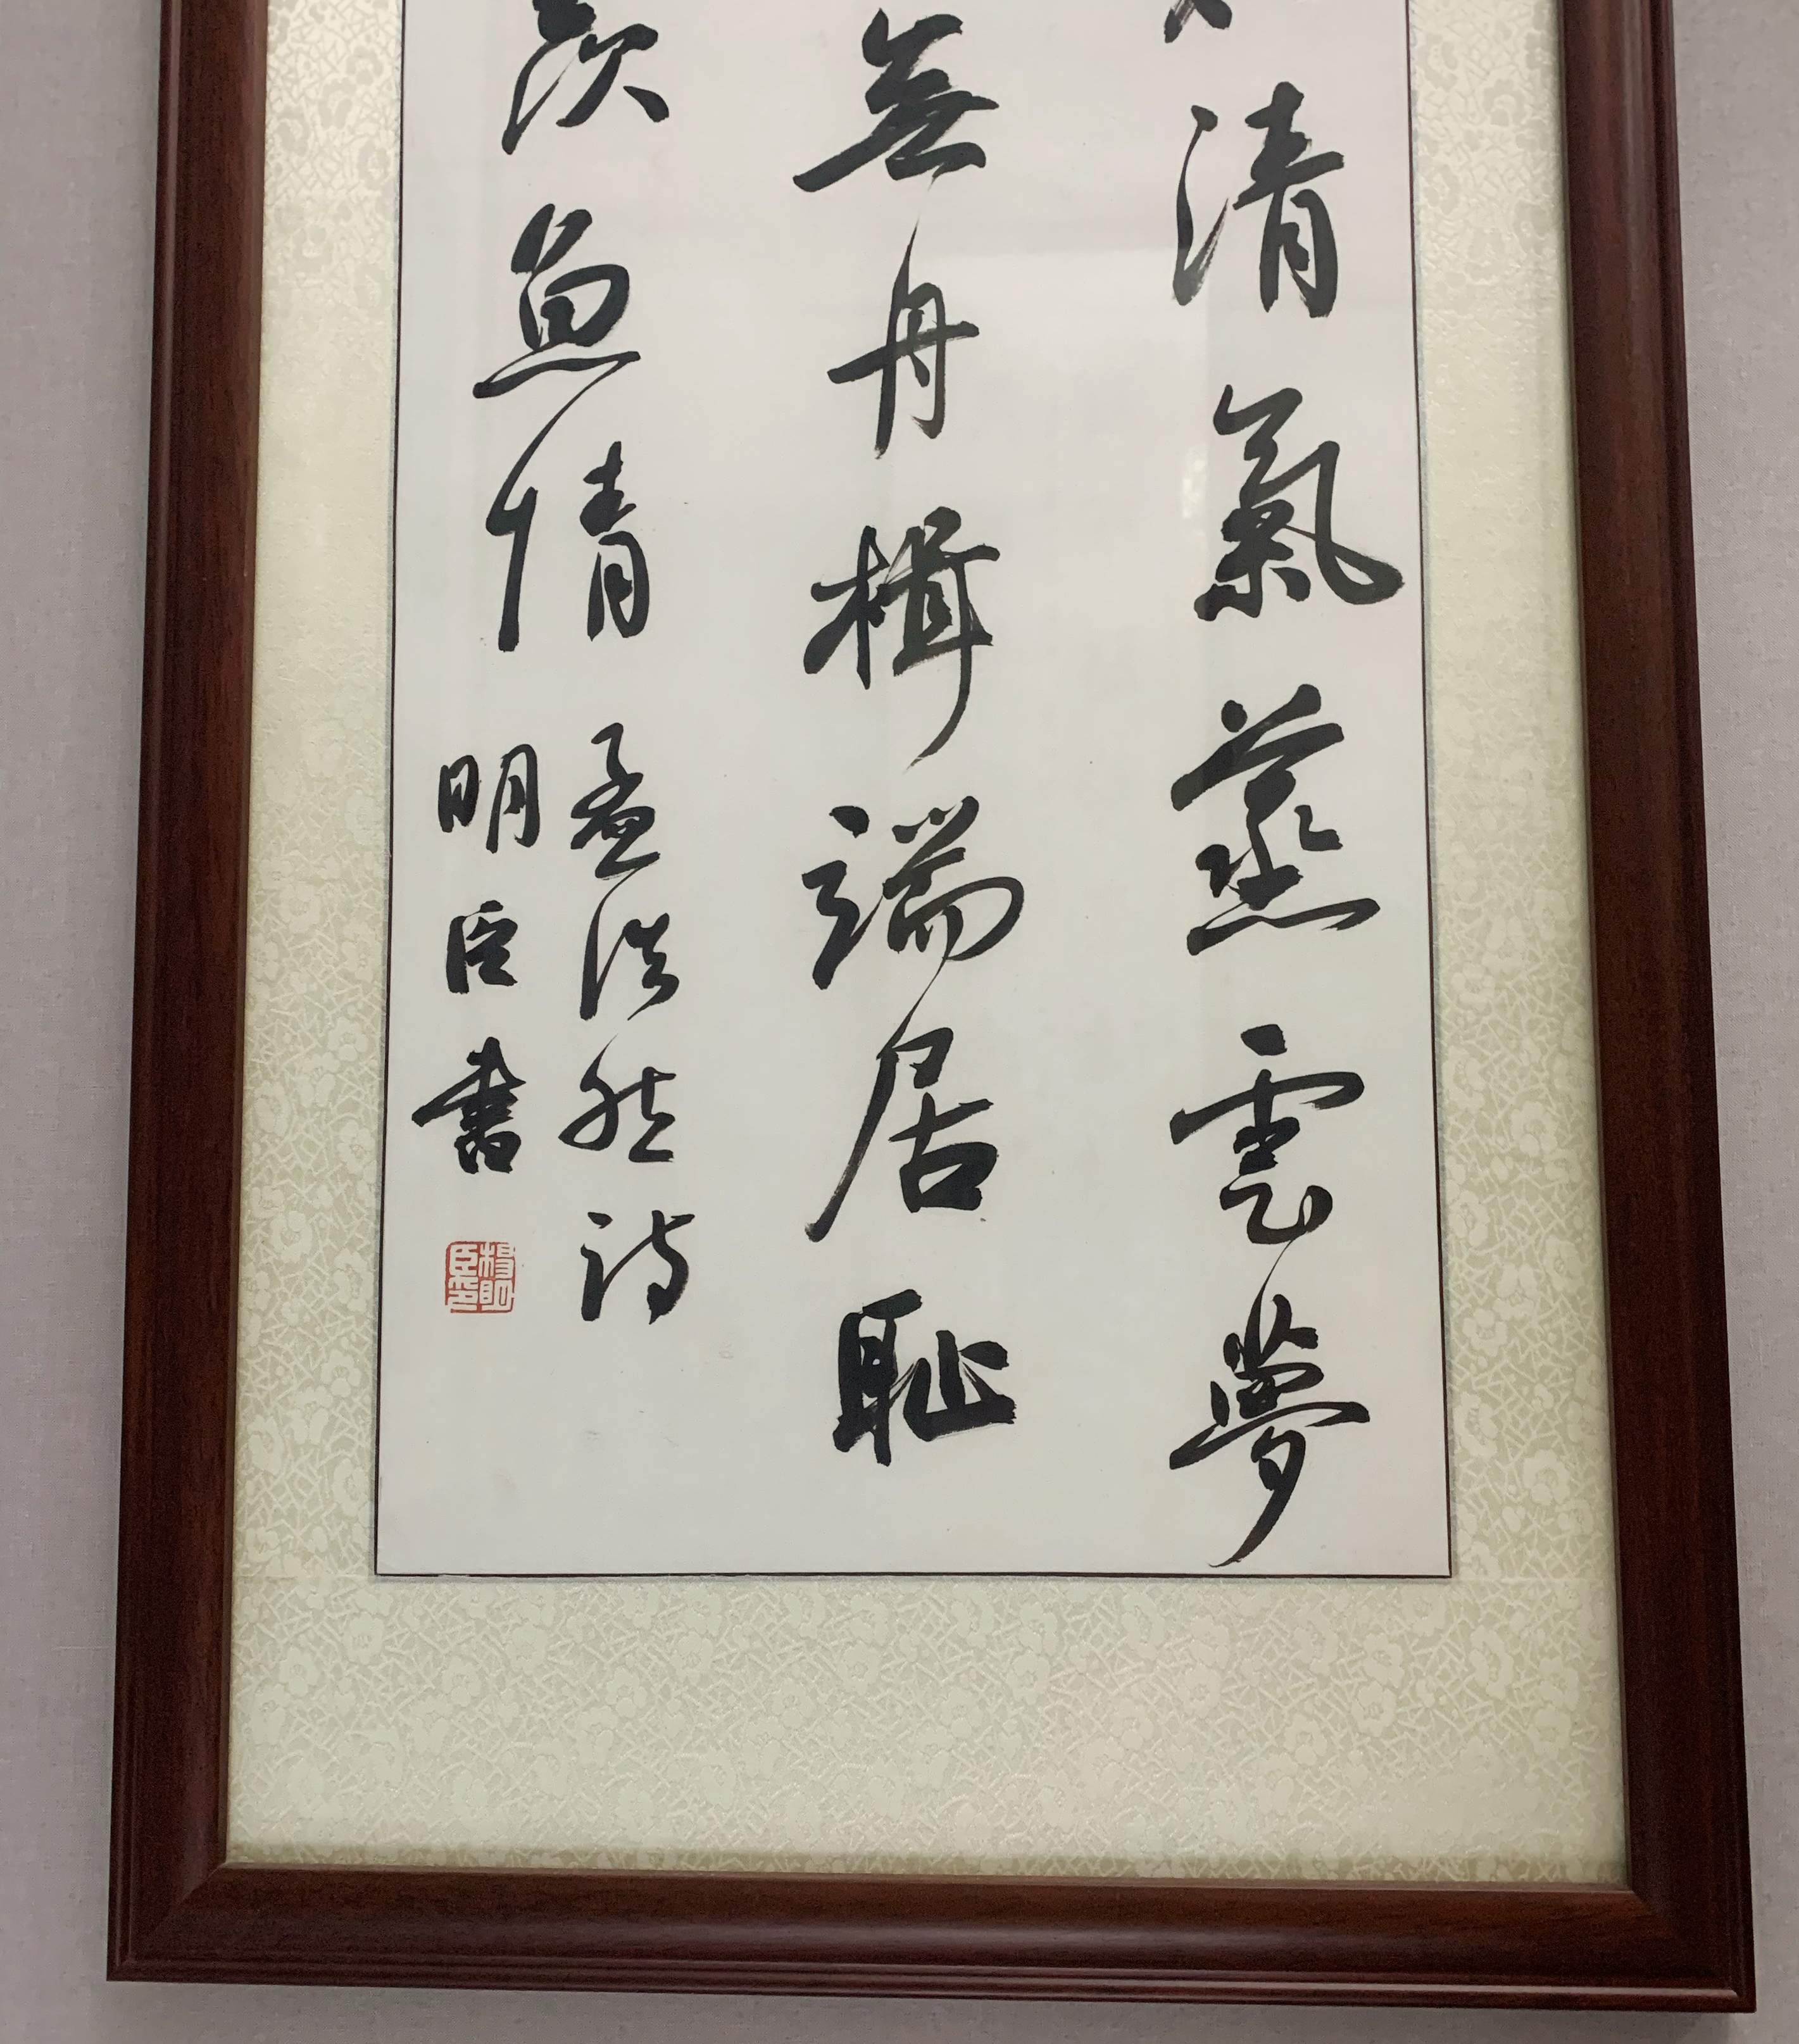 清氣蒸雲夢
無舟楫端居恥
羨魚情
孟浩然詩
明臣書
楊明臣印